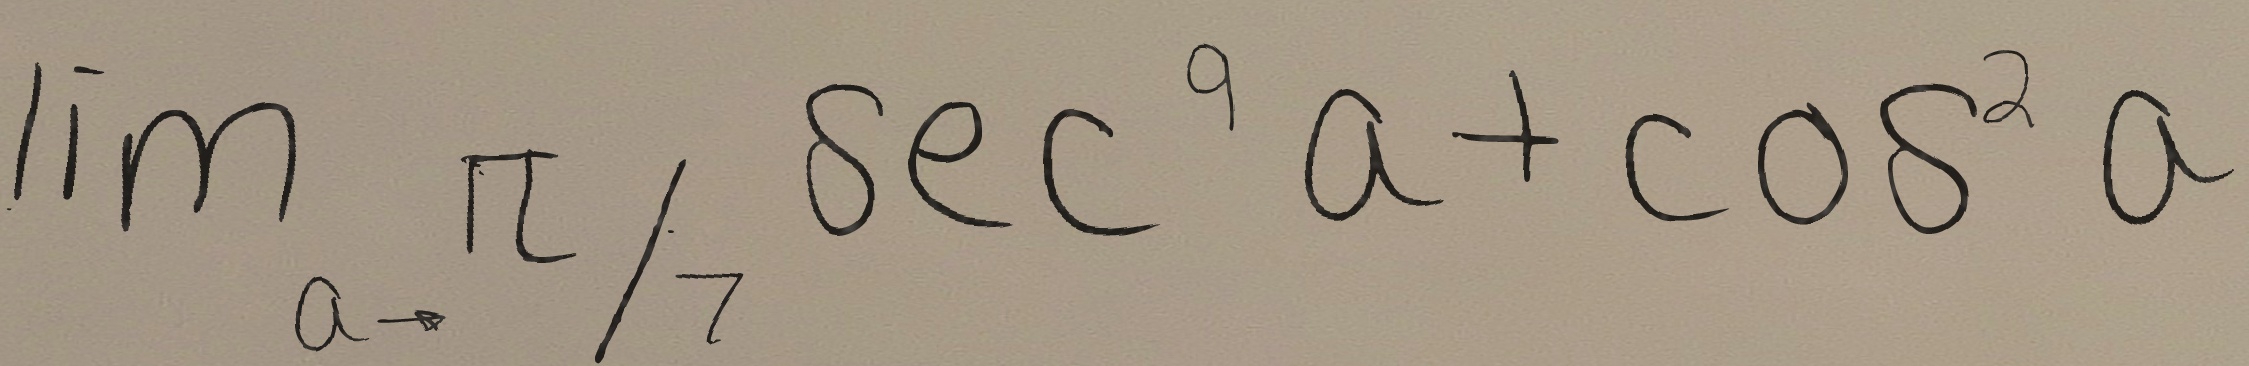 lim a→π/7 sec^9 a + cos^2 a